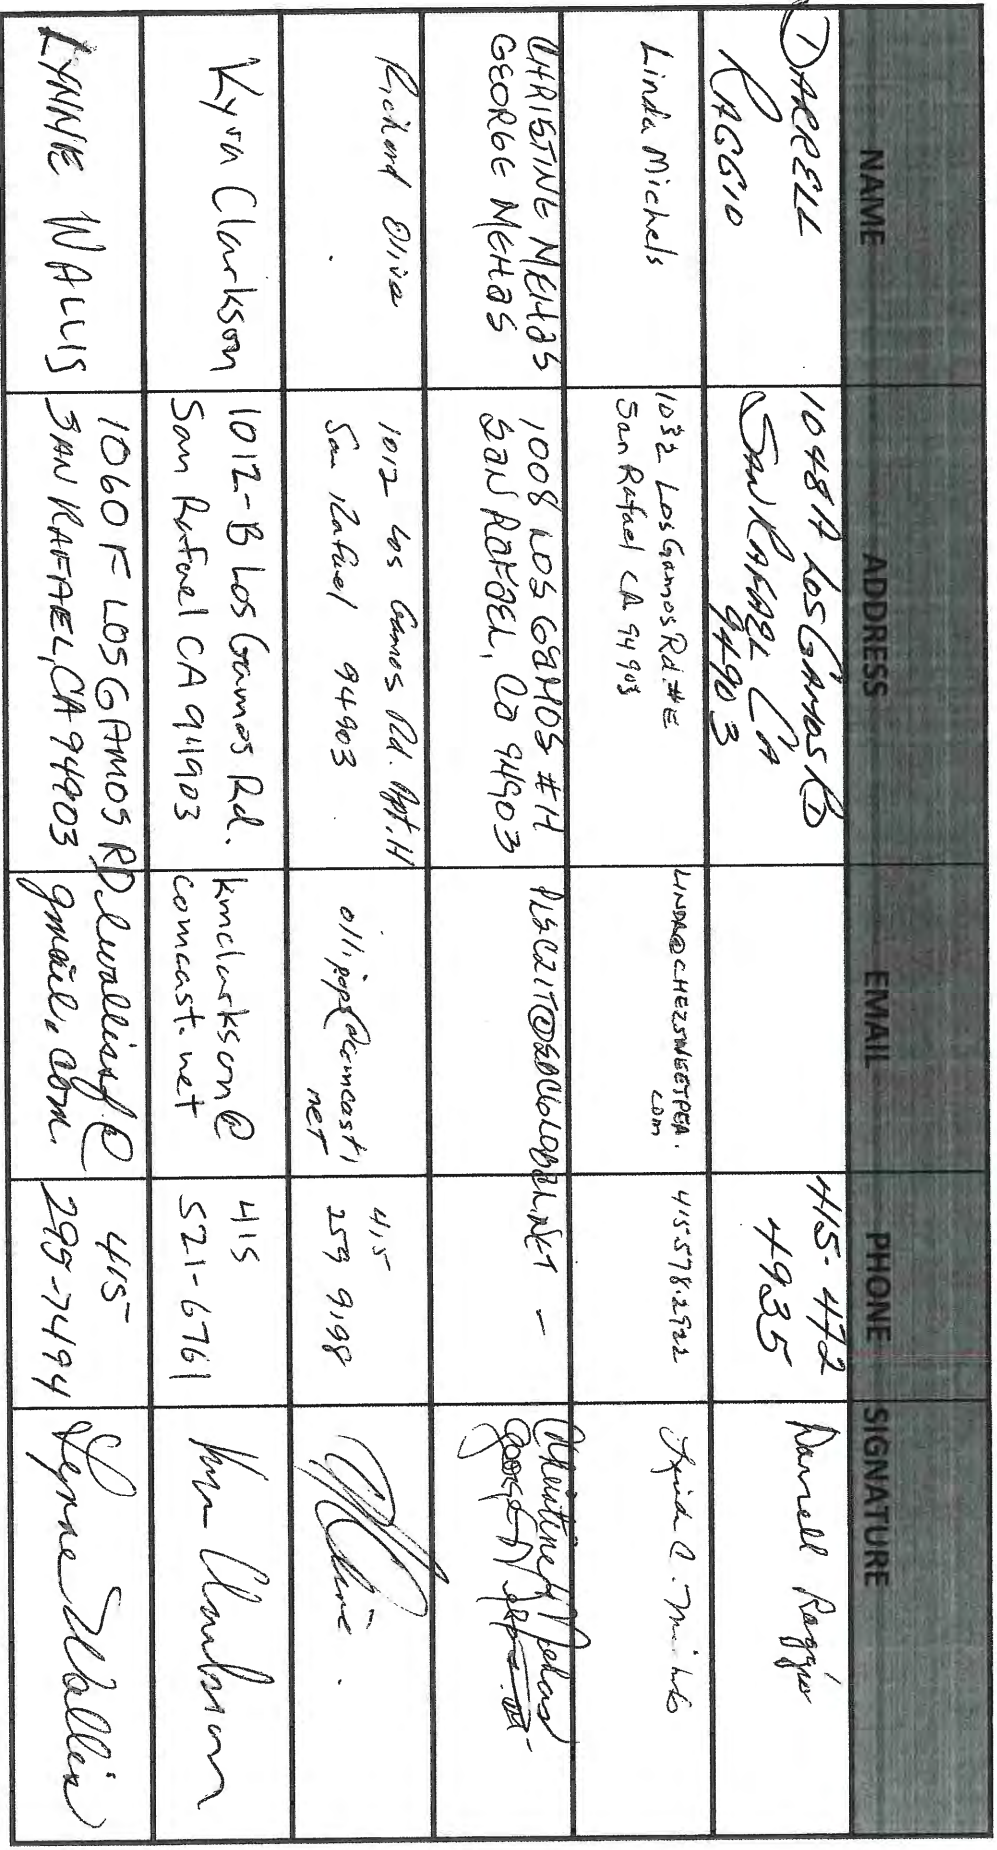 NAME ADDRESS EMAIL PHONE SIGNATURE
DARRELL
RAGGIO
1048A Los Gamos RD
SAN RAFAEL CA
94903
415-472
4935
Darrell Raggio
Linda Michels
1032 Los Gamos Rd #E
San Rafael CA 94903
LINDA@CHEZSWEETPEA.
com
415-578-2922
Linda C. Michels
CHRISTINE MEHas
GEORGE MEHas
1008 LOS GaMOS #H
SaN RaFaEL, Ca 94903
-
Christine Mehas
Richard Oliva
1012 Los Gamos Rd. Apt. H
San Rafael 94903
net
415
259 9198
Kyra Clarkson
1012-B Los Gamos Rd.
San Rafael CA 94903
kmclarkson@
comcast.net
415
521-6761
LYNNE WALLIS
1060 F LOS GAMOS RD
SAN RAFAEL, CA 94903
gmail.com.
415
299-7494
Lynne Wallis